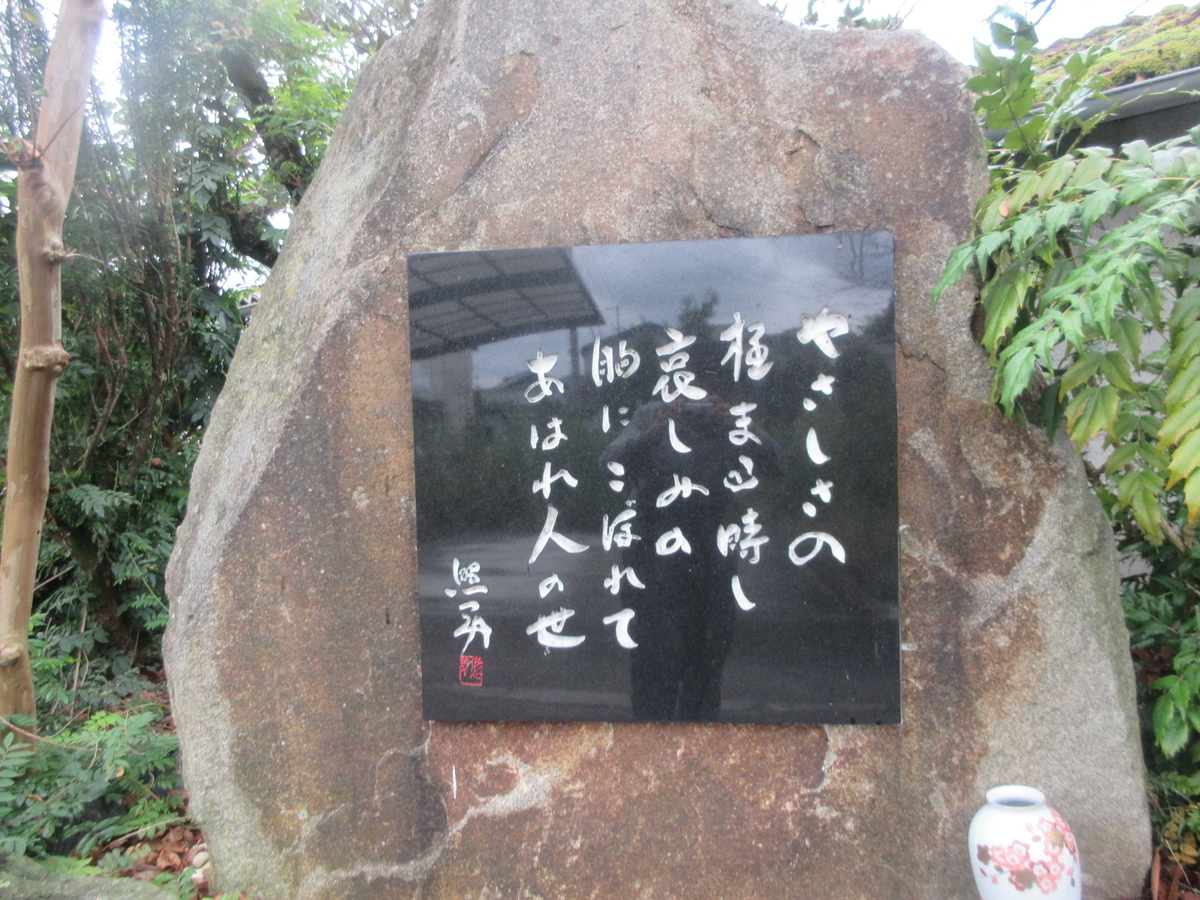 やさしさの
極まる時し
哀しみの
胸にこぼれて
あはれ人の世